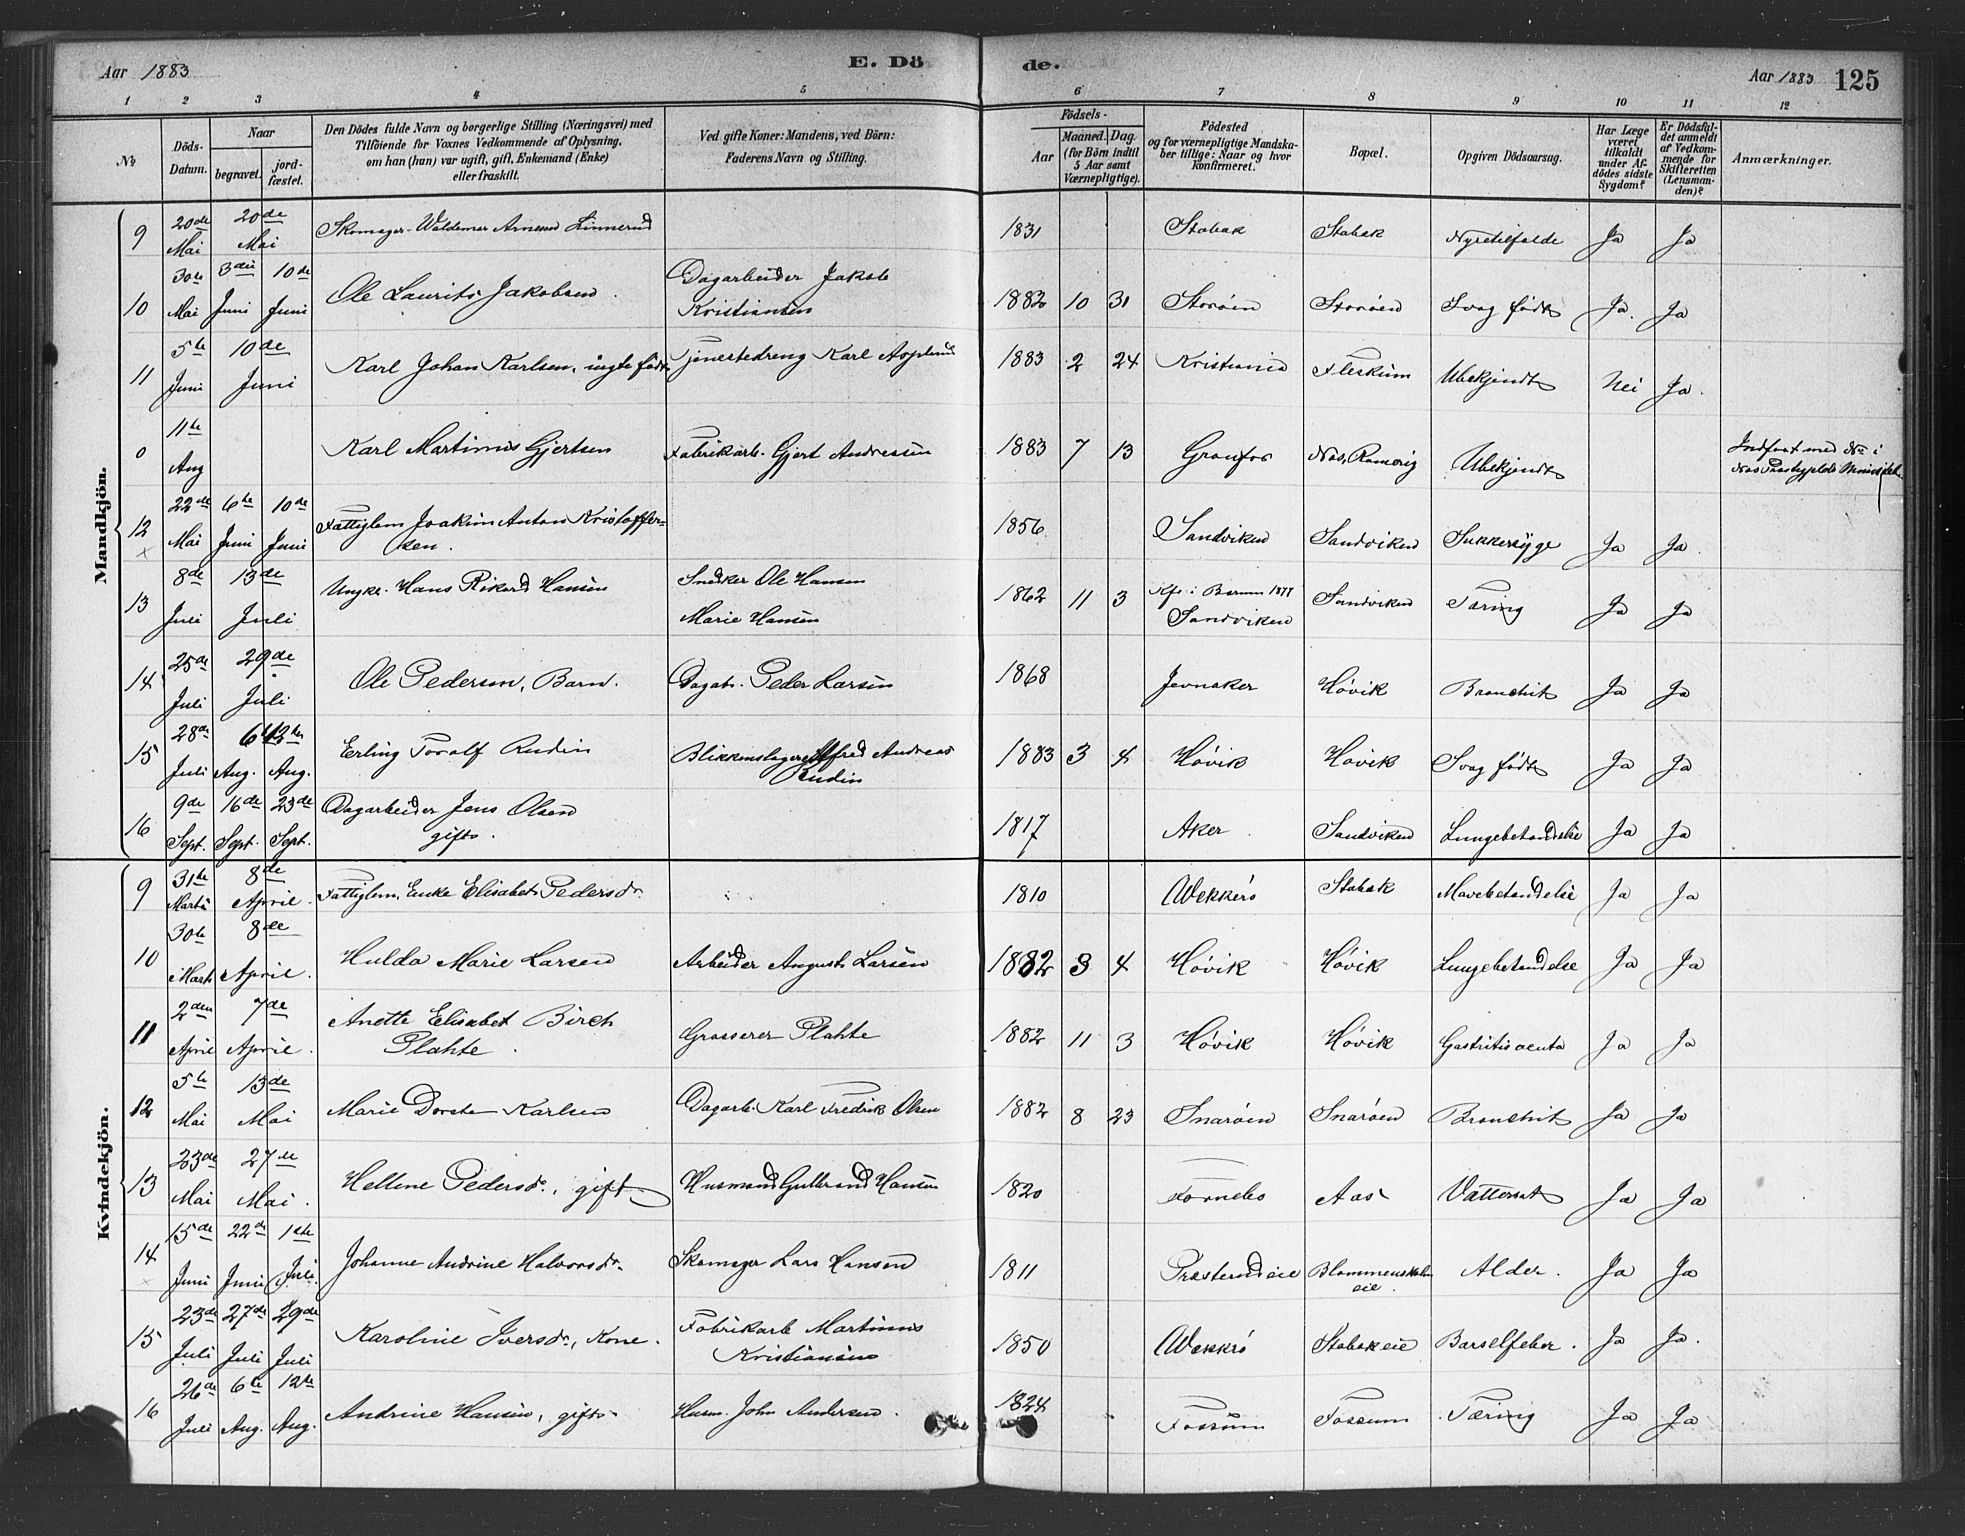 Aar 1883
E. Dö
de.
Aar 1883
125
1 2 3 4 5 6 7 8 9 10 11 12
№
Döds-Datum.
Naar
begravet.
jord-fæstet.
Den Dödes fulde Navn og borgerlige Stilling (Næringsvei) med
Tilföiende for Voxnes Vedkommende af Oplysning,
om han (hun) var ugift, gift, Enkemand (Enke)
eller fraskilt.
Ved gifte Koner: Mandens, ved Börn:
Faderens Navn og Stilling.
Födsels-
Aar
Maaned. Dag.
(for Börn indtil
5 Aar samt
Værnepligtige).
Födested
og for værnepligtige Mandska-
ber tillige: Naar og hvor
konfirmeret.
Bopæl.
Opgiven Dödsaarsag.
Har Læge
været
tilkaldt
under Af-
dödes sidste
Sygdom?
Er Dödsfal-
det anmeldt
af Vedkom-
mende for
Skifteretten
(Lensman-
den)?
Anmærkninger.
Mandkjön.
9 20de Mai 20de Mai Skomager Waldemar Arnesen Linnerud 1831 Stabæk Stabæk Ja Ja
10 30te Mai 3die Juni 10de Juni Ole Laurits Jakobsen Dagarbeider Jakob Kristiansen 1882 10 31 Storøen Storøen Svag født Ja Ja
11 5te Juni 10de Juni Karl Johan Karlsen, uægte født Tjenestedreng Karl 1883 2 24 Kristiania Fleskum Ubekjendt Nei Ja
0 11te Aug Karl Martinus Gjertsen Fabrikarb. Gjert Andreassen 1883 7 13 Granfos Næs, Romerig Ubekjendt Indført med No i Næs Præstegjelds
12 x 22de Mai 6te Juni 10de Juni Fattiglem Joakim Anton Kristoffersen. 1856 Sandviken Sandviken Sukkersyge Ja Ja
13 8de Juli 13de Juli Ungkr. Hans Rikard Hansen Snedker Ole Hansen Marie Hansen 1862 11 3 Kfr. i Bærum 1877 Sandviken Sandviken Tæring Ja Ja
14 25de Juli 29de Juli Ole Pedersen, Barn. Dagarb. Peder Larsen 1868 Jevnaker Høvik Bronchit Ja Ja
15 28de Juli 6te Aug. 12te Aug. Erling Toralf Rudin Blikkenslager Alfred Andreas Rudin 1883 3 4 Høvik Høvik Svag født Ja Ja
16 9de Sept. 16de Sept. 23de Sept. Dagarbeider Jens Olsen gift. 1817 Aker Sandviken Lungebetændelse Ja Ja
Kvindekjön.
9 31te Marts 8de April Fattiglem, Enke Elisabet Pedersdr. 1810 Wækkerø Stabæk Mavebetændelse Ja Ja
10 30te Marts 8de April Hulda Marie Larsen Arbeider August Larsen 1882 3 4 Høvik Høvik Lungebetændelse Ja Ja
11 2den April 7de April Anette Elisabet Birch Plahte Grosserer Plahte 1882 11 3 Høvik Høvik Gastritis acuta Ja Ja
12 5te Mai 13de Mai Marie Dorste Karlsen Dagarb. Karl Fredrik Olsen 1882 8 23 Snarøen Snarøen Bronchit Ja Ja
13 23de Mai 27de Mai Hellene Pedersdr., gift Husmand Gulbrand Hansen 1820 Fornebo Aas Vattersot Ja Ja
14 x 15de Juni 22de Juni 1ste Juli Johanne Andrine Halvorsdr. Skomager Lars Hansen 1811 Præsterudeie Blommenholm eie Alder. Ja Ja
15 23de Juli 27de Juli 29de Juli Karoline Iversdr., Kone. Fabrikarb. Martinus Kristiansen 1850 Wækkerø Stabækeie Barselfeber. Ja Ja
16 26de Juli 6te Aug. 12te Aug. Andrine Hansen, gift Husm. John Andersen. 1824 Fossum Fossum Tæring Ja Ja